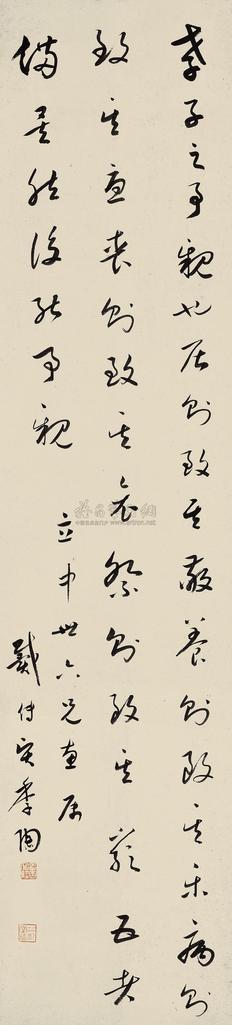 孝子之事親也居則致其敬養則致其樂病則
致其憂喪則致其哀祭則致其嚴五者
備矣然後能事親
立中世六兄直屬
戴傳賢季陶